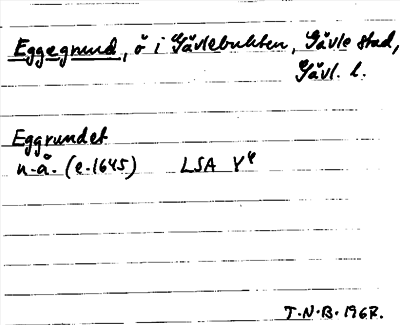 Eggegrund, ö i Gävlebukten, Gävle stad,
Gävl. l.
Eggrundet
n.å. (e. 1645) LSA Y4
T.N.B. 1967.